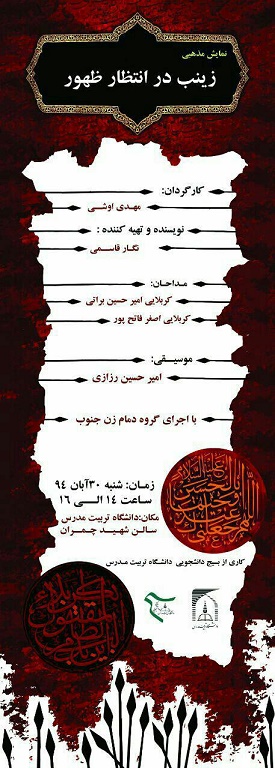 نمایش مذهبی
زینب در انتظار ظهور
کارگردان:
مهدی اوشی
نویسنده و تهیه کننده :
نگار قاسمی
مداحان:
کربلایی امیر حسین براتی
کربلایی اصغر فاتح پور
موسیقی:
امیر حسین رزازی
با اجرای گروه دمام زن جنوب
زمان: شنبه ۳۰آبان ۹۴
ساعت ۱۴ الی ۱۶
مکان:دانشگاه تربیت مدرس
سالن شهید چمران
کاری از بسیج دانشجویی دانشگاه تربیت مدرس